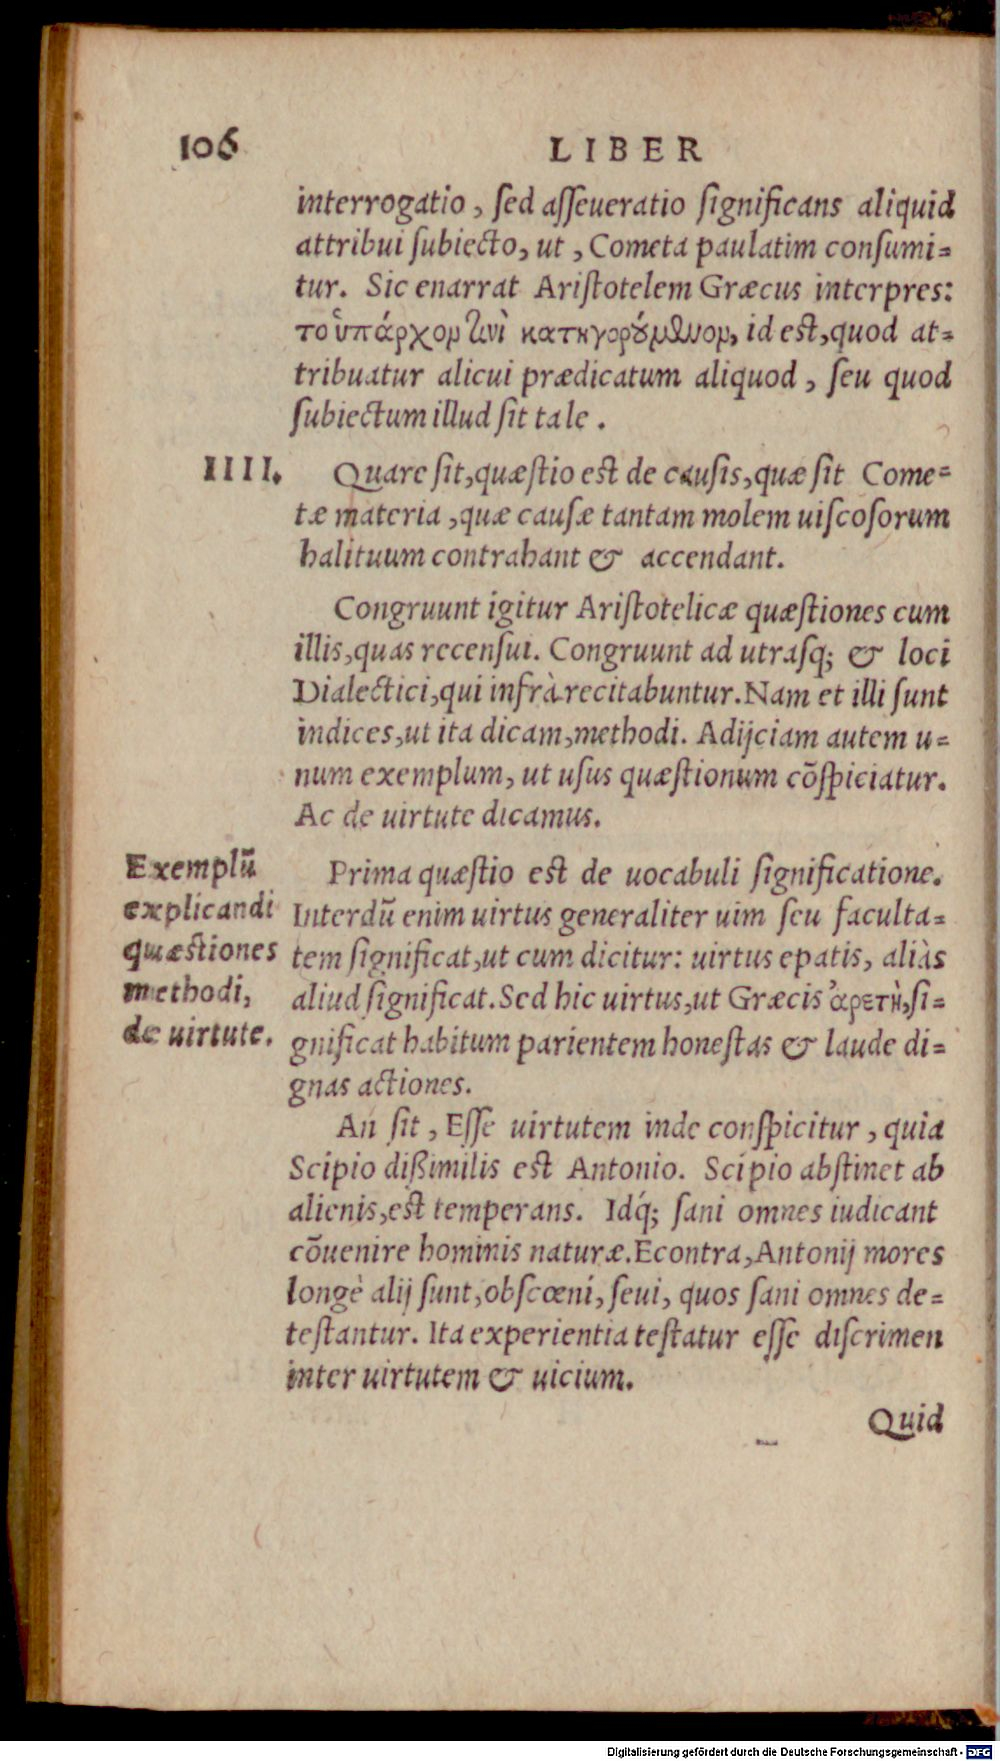 106 LIBER
interrogatio, ſed aſſeueratio ſignificans aliquid
attribui ſubiecto, ut, Cometa paulatim conſumi=
tur. Sic enarrat Ariſtotelem Græcus interpres:
το ὑπάρχον τινὶ κατηγορούμενον, id est, quod at=
tribuatur alicui prædicatum aliquod, ſeu quod
ſubiectum illud ſit tale.
IIII. Quare ſit, quæſtio est de cauſis, quæ ſit Come=
tæ materia, quæ cauſæ tantam molem uiſcoſorum
halituum contrahant & accendant.
Congruunt igitur Ariſtotelicæ quæſtiones cum
illis, quas recenſui. Congruunt ad utraſq; & loci
Dialectici, qui infrà recitabuntur. Nam et illi ſunt
indices, ut ita dicam, methodi. Adijciam autem u=
num exemplum, ut uſus quæſtionum cōſpiciatur.
Ac de uirtute dicamus.
Exemplū
explicandi
quæstiones
methodi,
de uirtute.
Prima quæſtio est de uocabuli ſignificatione.
Interdū enim uirtus generaliter uim ſeu faculta=
tem ſignificat, ut cum dicitur: uirtus epatis, aliàs
aliud ſignificat. Sed hic uirtus, ut Græcis ἀρετὴ, ſi=
gnificat habitum parientem honeſtas & laude di=
gnas actiones.
An ſit, Eſſe uirtutem inde conſpicitur, quia
Scipio dißimilis est Antonio. Scipio abſtinet ab
alienis, est temperans. Idq́; ſani omnes iudicant
cōuenire hominis naturæ. Econtra, Antonij mores
longè alij ſunt, obſcœni, ſeui, quos ſani omnes de=
teſtantur. Ita experientia teſtatur eſſe diſcrimen
inter uirtutem & uicium.
Quid
Digitalisierung gefördert durch die Deutsche Forschungsgemeinschaft - DFG